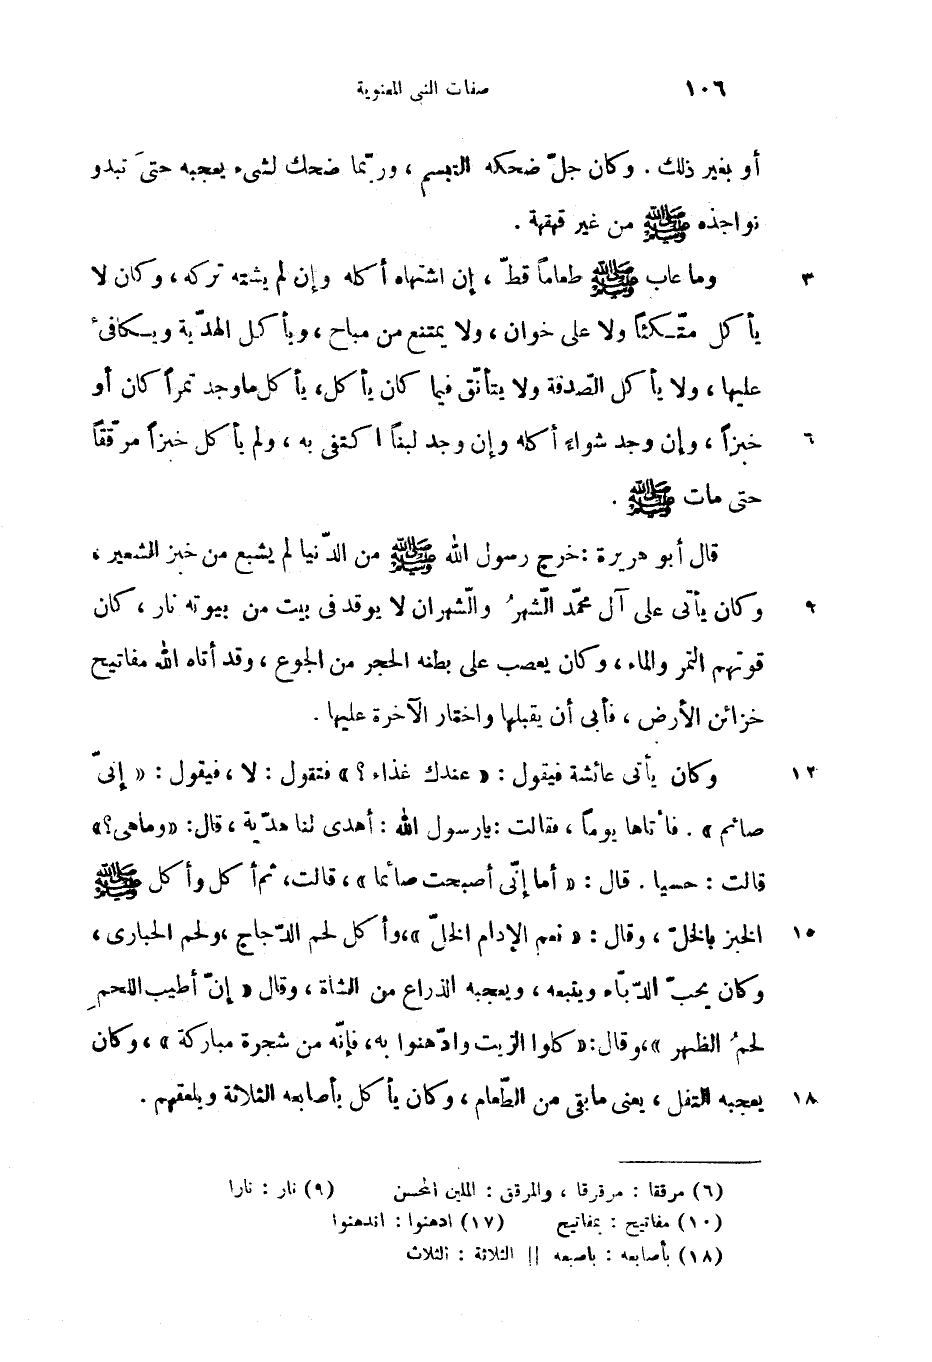 ١٠٦ صفات النبى المعنوية
أو بغير ذلك . وكان جلّ ضحكه التبسم ، وربّما ضحك لشىء يعجبه حتىَ تبدو
نواجذه ﷺ من غير قهقهة .
٣ وما عاب ﷺ طعاماً قطّ ، إن اشتهاه أكله وإن لم يشته تركه ، وكان لا
يأكل متّكئاً ولا على خوان ، ولا يمتنع من مباح ، ويأكل الهديّة ويكافئ
عليها ، ولا يأكل الصّدقة ولا يتأنّق فيما كان يأكل، يأكل ماوجد تمراً كان أو
٦ خبزاً ، وإن وجد شواءً أكله وإن وجد لبناً اكتفى به ، ولم يأكل خبزاً مرقّقاً
حتى مات ﷺ .
قال أبو هريرة : خرج رسول الله ﷺ من الدّنيا لم يشبع من خبز الشعير ،
٩ وكان يأتى على آل محمّد الشّهرُ والشّهران لا يوقد فى بيت من بيوته نار ، كان
قوتهم التمر والماء ، وكان يعصب على بطنه الحجر من الجوع ، وقد أتاه الله مفاتيح
خزائن الأرض ، فأبى أن يقبلها واختار الآخرة عليها .
١٢ وكان يأتى عائشة فيقول : « عندك غذاء ؟ » فتقول : لا ، فيقول : « إنىّ
صائم » . فأتاها يوماً ، فقالت : يارسول الله : أهدى لنا هديّة ، قال: «وماهى؟»
قالت : حسيا . قال : « أما إنّى أصبحت صائما » ، قالت، ثم أكل وأكل ﷺ
١٥ الخبز بالخلّ ، وقال : « نعم الإدام الخلّ »،وأكل لحم الدّجاج ،ولحم الحبارى ،
وكان يحبّ الدّبّاء ويتبعه ، ويعجبه الذراع من الشاة ، وقال « إنّ أطيب اللحمِ
لحمُ الظهر »،وقال:« كلوا الزيت وادّهنوا به، فإنّه من شجرة مباركة » ، وكان
١٨ يعجبه الثفل ، يعنى مابقى من الطّعام ، وكان يأكل بأصابعه الثلاثة ويلعقهم .
(٦) مرققا : مرقرقا ، والمرقق : الملين المحسن (٩) نار : نارا
(١٠) مفاتيح : بمفاتيح (١٧) ادهنوا : اندهنوا
(١٨) بأصابعه : باصبعه || الثلاثة : الثلاث